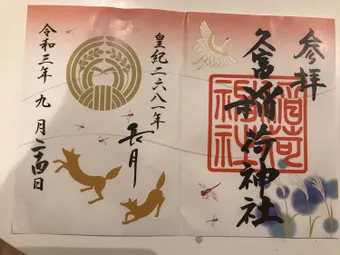 参拝
久富稲荷神社
稲荷神社
皇紀二六八一年
長月
令和三年 九月二十四日